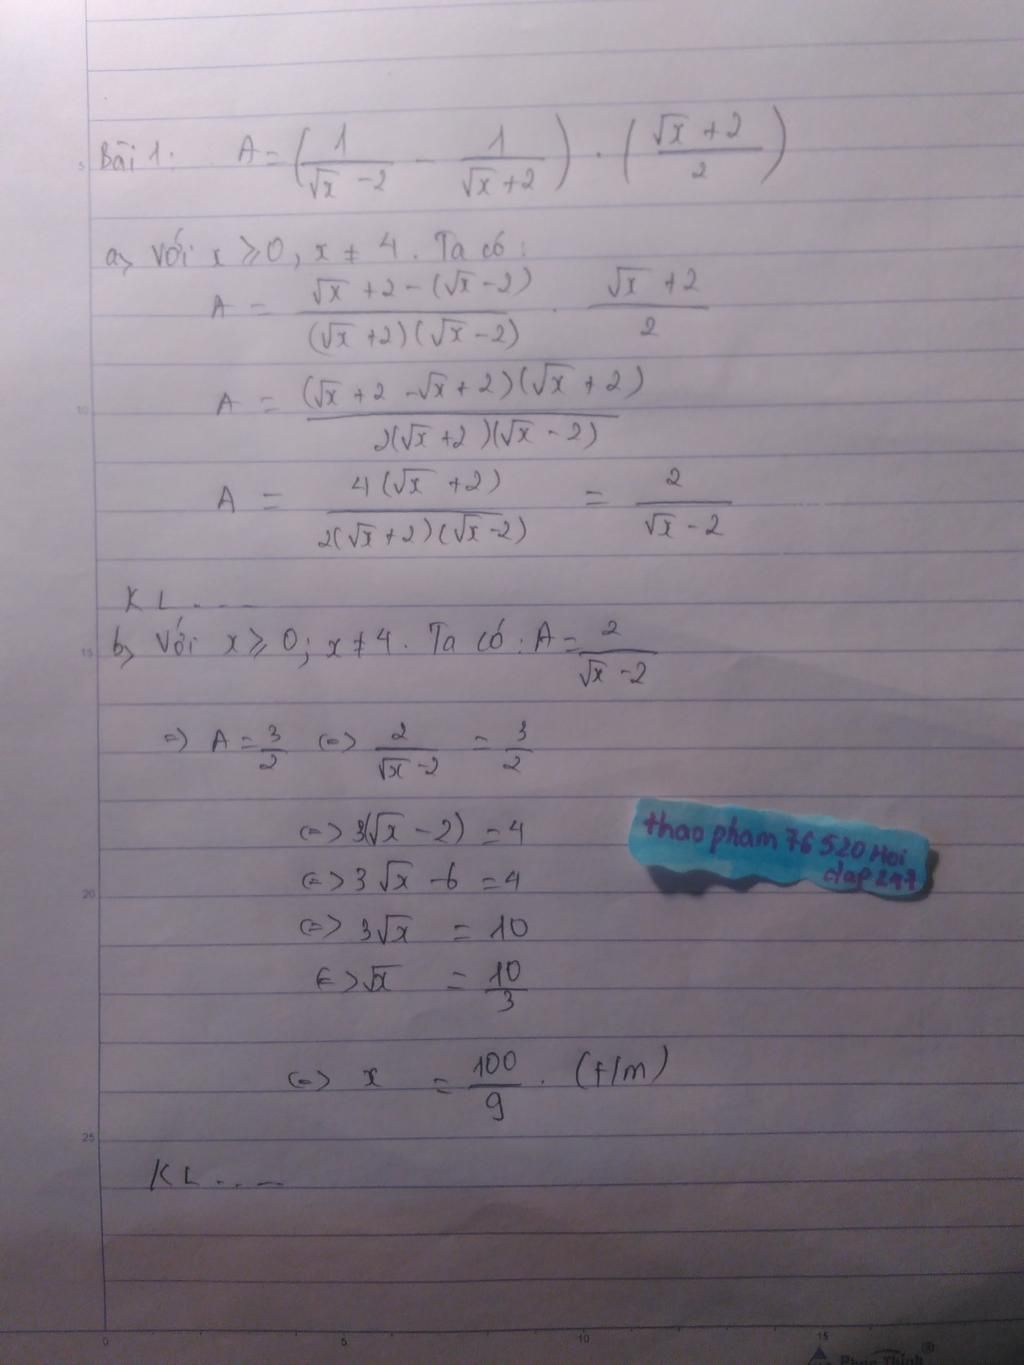 Bài 1: A = (1/(√x - 2) - 1/(√x + 2)) . ((√x + 2)/2)
a, Với x ⩾ 0, x ≠ 4. Ta có:
A = (√x + 2 - (√x - 2))/((√x + 2)(√x - 2)) . (√x + 2)/2
A = ((√x + 2 - √x + 2)(√x + 2))/(2(√x + 2)(√x - 2))
A = (4(√x + 2))/(2(√x + 2)(√x - 2)) = 2/(√x - 2)
KL....
b, Với x ⩾ 0; x ≠ 4. Ta có: A = 2/(√x - 2)
=> A = 3/2 <=> 2/(√x - 2) = 3/2
<=> 3(√x - 2) = 4
<=> 3√x - 6 = 4
<=> 3√x = 10
<=> √x = 10/3
<=> x = 100/9 . (t/m)
KL....
thao pham 76 520 Hoi
dap 247
5
10
15
20
25
0 5 10 15